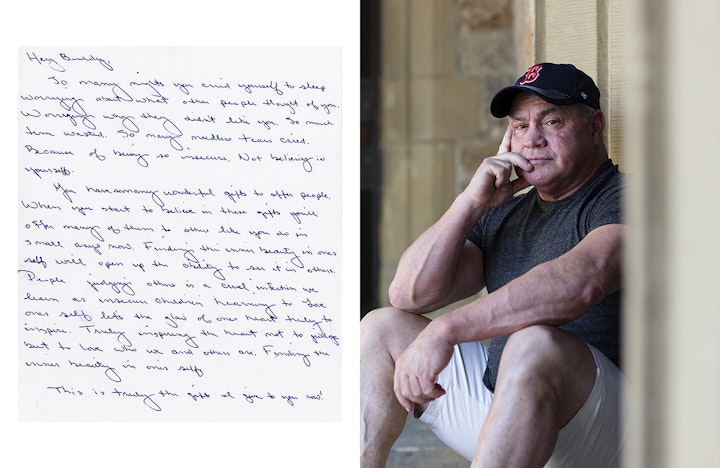 Hey Buddy,
So many nights you cried yourself to sleep
worrying about what other people thought of you.
Worrying why they didn't like you. So much
time wasted. So many needless tears cried.
Because of being so insecure. Not believing in
yourself.
You have so many wonderful gifts to offer people.
When you start to believe in these gifts you'll
offer many of them to others like you do in
small ways now. Finding the inner beauty in ones
self will open up the ability to see it in others.
People judging others is a cruel infection we
learn as insecure children. Learning to love
ones self lets the glow of one heart truly to
inspire. Truly inspiring the heart not to judge
but to love who we and others are. Finding the
inner beauty in ones self
This is truly the gift I give to you now!
B